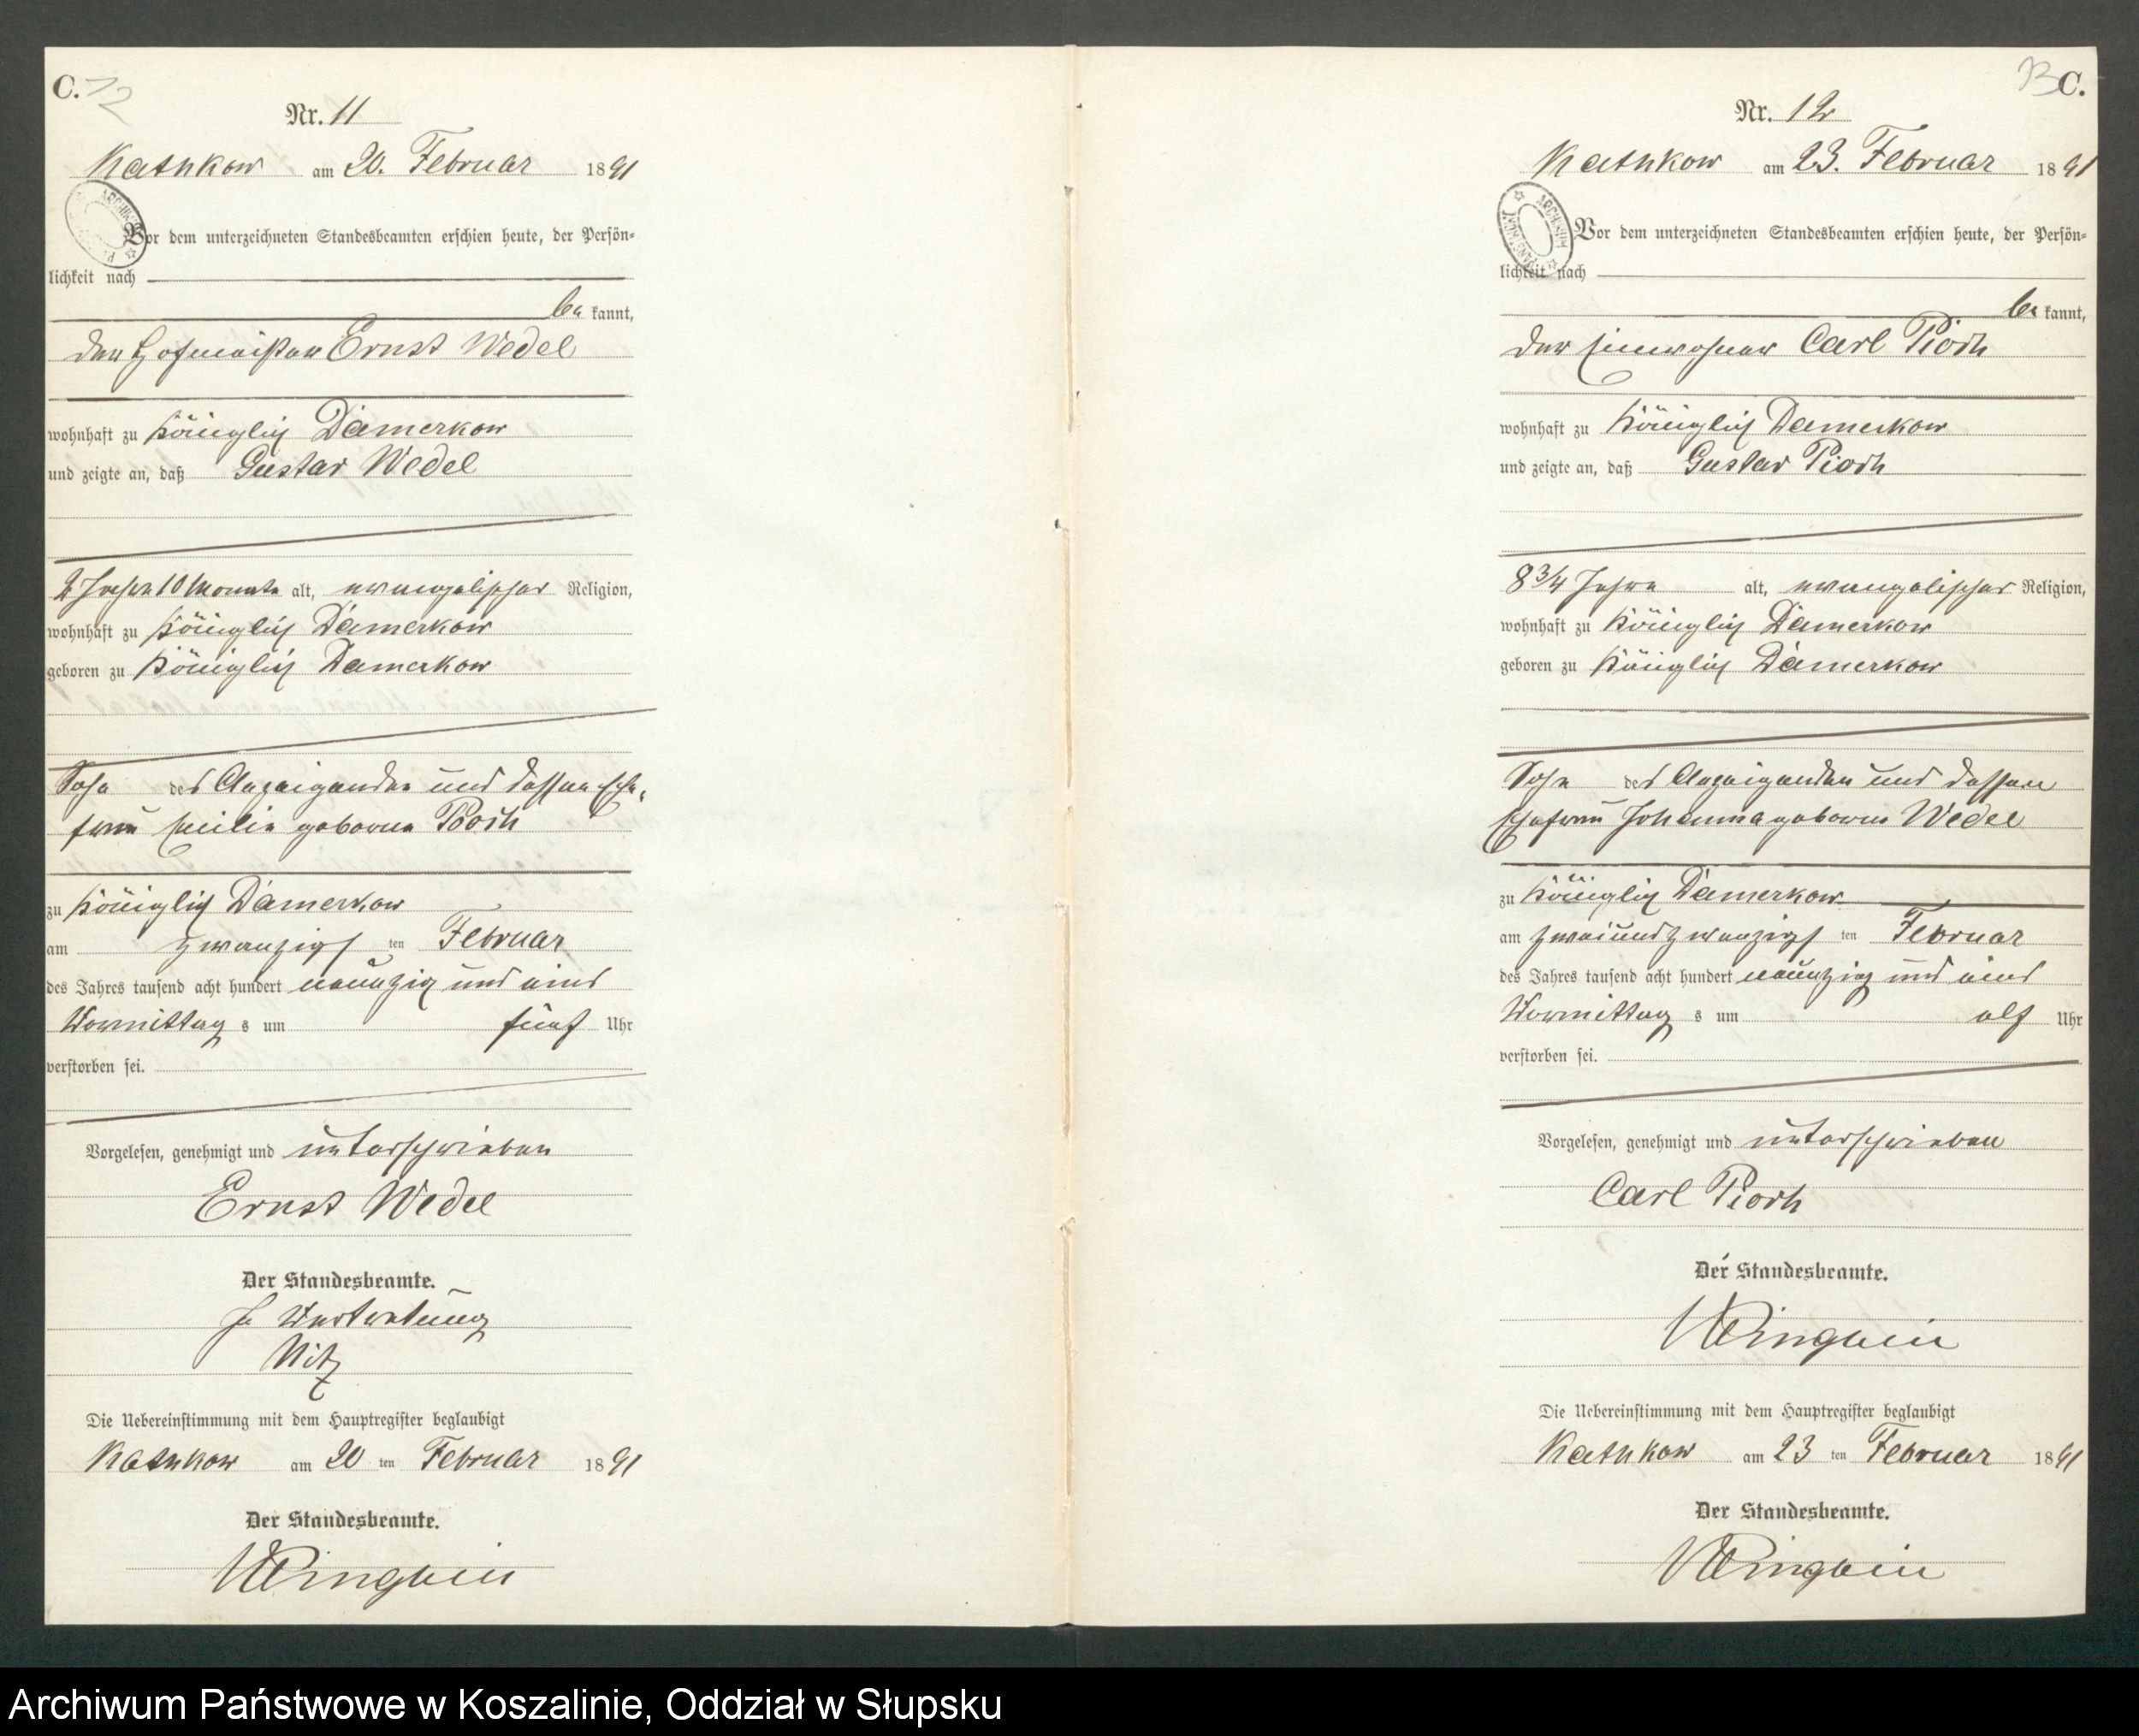 C. 12
Nr. 11
Kathkow am 20. Februar 1891
Vor dem unterzeichneten Standesbeamten erschien heute, der Persön-
lichkeit nach
be kannt,
der Hofmeister Ernst Wedel
wohnhaft zu Königlich Damerkow
und zeigte an, daß Gustav Wedel
2 Jahre 10 Monate alt, evangelischer Religion,
wohnhaft zu Königlich Damerkow
geboren zu Königlich Damerkow
Sohn des Anzeigenden und dessen Ehe-
frau Emilie geborene Pioch
zu Königlich Damerkow
am zwanzigs ten Februar
des Jahres tausend acht hundert neunzig und eins
Vormittag s um fünf Uhr
verstorben sei.
Vorgelesen, genehmigt und unterschrieben
Ernst Wedel
Der Standesbeamte.
In Vertretung
Nitz
Die Uebereinstimmung mit dem Hauptregister beglaubigt
Kathkow am 20 ten Februar 1891
Der Standesbeamte.
13 C.
Nr. 12
Kathkow am 23. Februar 1891
Vor dem unterzeichneten Standesbeamten erschien heute, der Persön-
lichkeit nach
be kannt,
der Einwohner Carl Pioch
wohnhaft zu Königlich Damerkow
und zeigte an, daß Gustav Pioch
8 3/4 Jahre alt, evangelischer Religion,
wohnhaft zu Königlich Damerkow
geboren zu Königlich Damerkow
Sohn des Anzeigenden und dessen
Ehefrau Johanna geborene Wedel
zu Königlich Damerkow
am zweiundzwanzigs ten Februar
des Jahres tausend acht hundert neunzig und eins
Vormittag s um elf Uhr
verstorben sei.
Vorgelesen, genehmigt und unterschrieben
Carl Pioch
Der Standesbeamte.
Die Uebereinstimmung mit dem Hauptregister beglaubigt
Kathkow am 23 ten Februar 1891
Der Standesbeamte.
Archiwum Państwowe w Koszalinie, Oddział w Słupsku